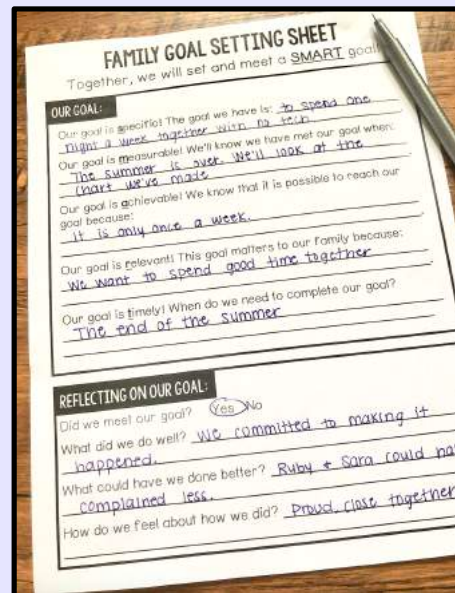 FAMILY GOAL SETTING SHEET
Together, we will set and meet a SMART goal!
OUR GOAL:
Our goal is specific! The goal we have is: to spend one
night a week together with no tech.
Our goal is measurable! We'll know we have met our goal when:
The summer is over. We'll look at the
chart we've made
Our goal is achievable! We know that it is possible to reach our
goal because:
it is only once a week.
Our goal is relevant! This goal matters to our family because:
We want to spend good time together
Our goal is timely! When do we need to complete our goal?
The end of the summer
REFLECTING ON OUR GOAL:
Did we meet our goal? Yes No
What did we do well? We committed to making it
happened.
What could have we done better? Ruby + Sara could ha
complained less.
How do we feel about how we did? Proud, close together